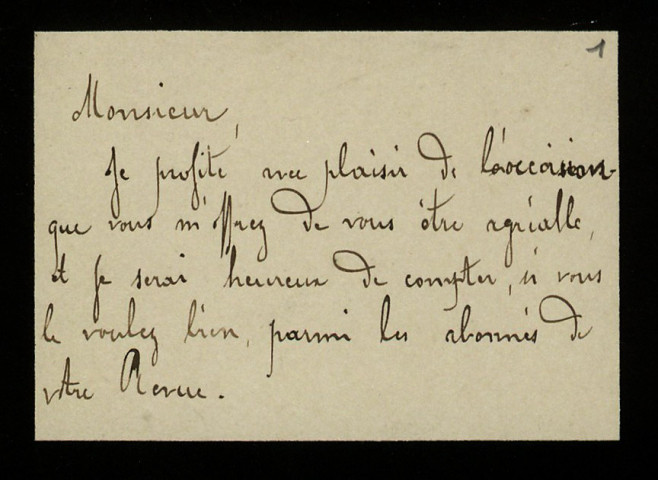 1
Monsieur,
Je profite avec plaisir de l'occasion
que vous m'offrez de vous être agréable,
et je serai heureux de compter, si vous
le voulez bien, parmi les abonnés de
votre Revue.